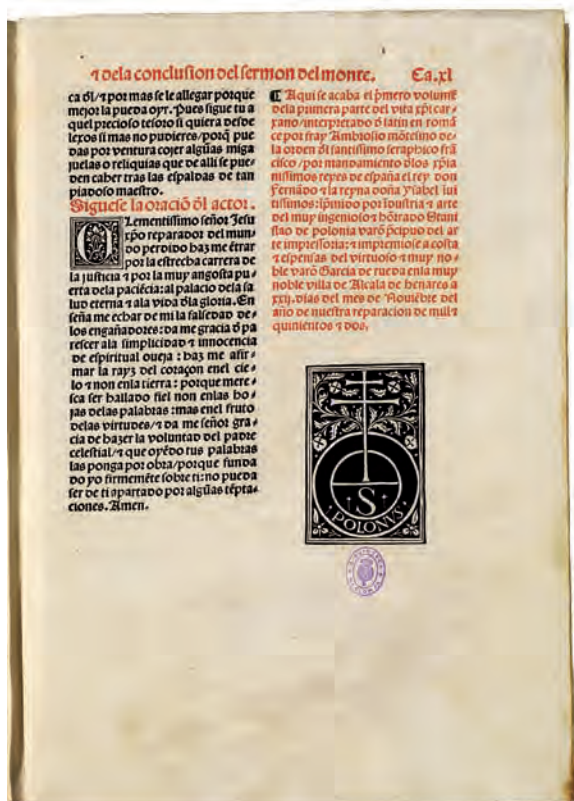 ⁊ dela conclusion del sermon del monte. Ca.xl
ca dl/⁊ por mas se le allegar porque
mejor la pueda oyr. Pues sigue tu a
quel precioso tesoro si quiera desde
lexos si mas no pudieres/porq̃ pue
das por ventura cojer algũas miga
juelas o reliquias que de alli se pue⸗
den caber tras las espaldas de tan
piadoso maestro.
Siguese la oraciõ d̃l actor.
Clementissimo señor Jesu
xp̃o reparador del mun⸗
do perdido haz me ẽtrar
por la estrecha carrera de
la justicia ⁊ por la muy angosta pu⸗
erta dela paciẽcia: al palacio dela sa
lud eterna ⁊ ala vida d̃la gloria. En
seña me echar de mi la falsedad de⸗
los engañadores: da me gracia d̃ pa
rescer ala simplicidad ⁊ innocencia
de espiritual oueja : haz me afir⸗
mar la rayz del coraçon enel cie⸗
lo ⁊ non enla tierra : porque mere⸗
sca ser hallado fiel non enlas ho⸗
jas delas palabras : mas enel fruto
delas virtudes/⁊ da me señor gra⸗
cia de hazer la voluntad del padre
celestial/⁊ que oyẽdo tus palabras
las ponga por obra/porque funda
do yo firmemẽte sobre ti: no pueda
ser de ti apartado por algũas tẽpta⸗
ciones. Amen.
¶ Aqui se acaba el p̃mero volumẽ
dela primera parte del vita xp̃i car⸗
xano/interpretado d̃ latin en romã
ce por fray Ambrosio mõtesino de⸗
la orden d̃l santissimo seraphico frã
cisco/por mandamiento d̃los xp̃ia
nissimos reyes de españa el rey don
Fernãdo ⁊ la reyna doña ysabel iui
tissimos: ip̃mido por ĩdustria ⁊ arte
del muy ingenioso ⁊ hõrrado Stani
slao de polonia varõ p̃cipuo del ar
te impressoria: ⁊ impremiose a costa
⁊ espensas del virtuoso ⁊ muy no⸗
ble varõ Garcia de rueda enla muy
noble villa de Alcala de henares a
xxij. dias del mes de Nouiẽbre del
año de nuestra reparacion de mil ⁊
quinientos ⁊ dos.
S
POLONVS